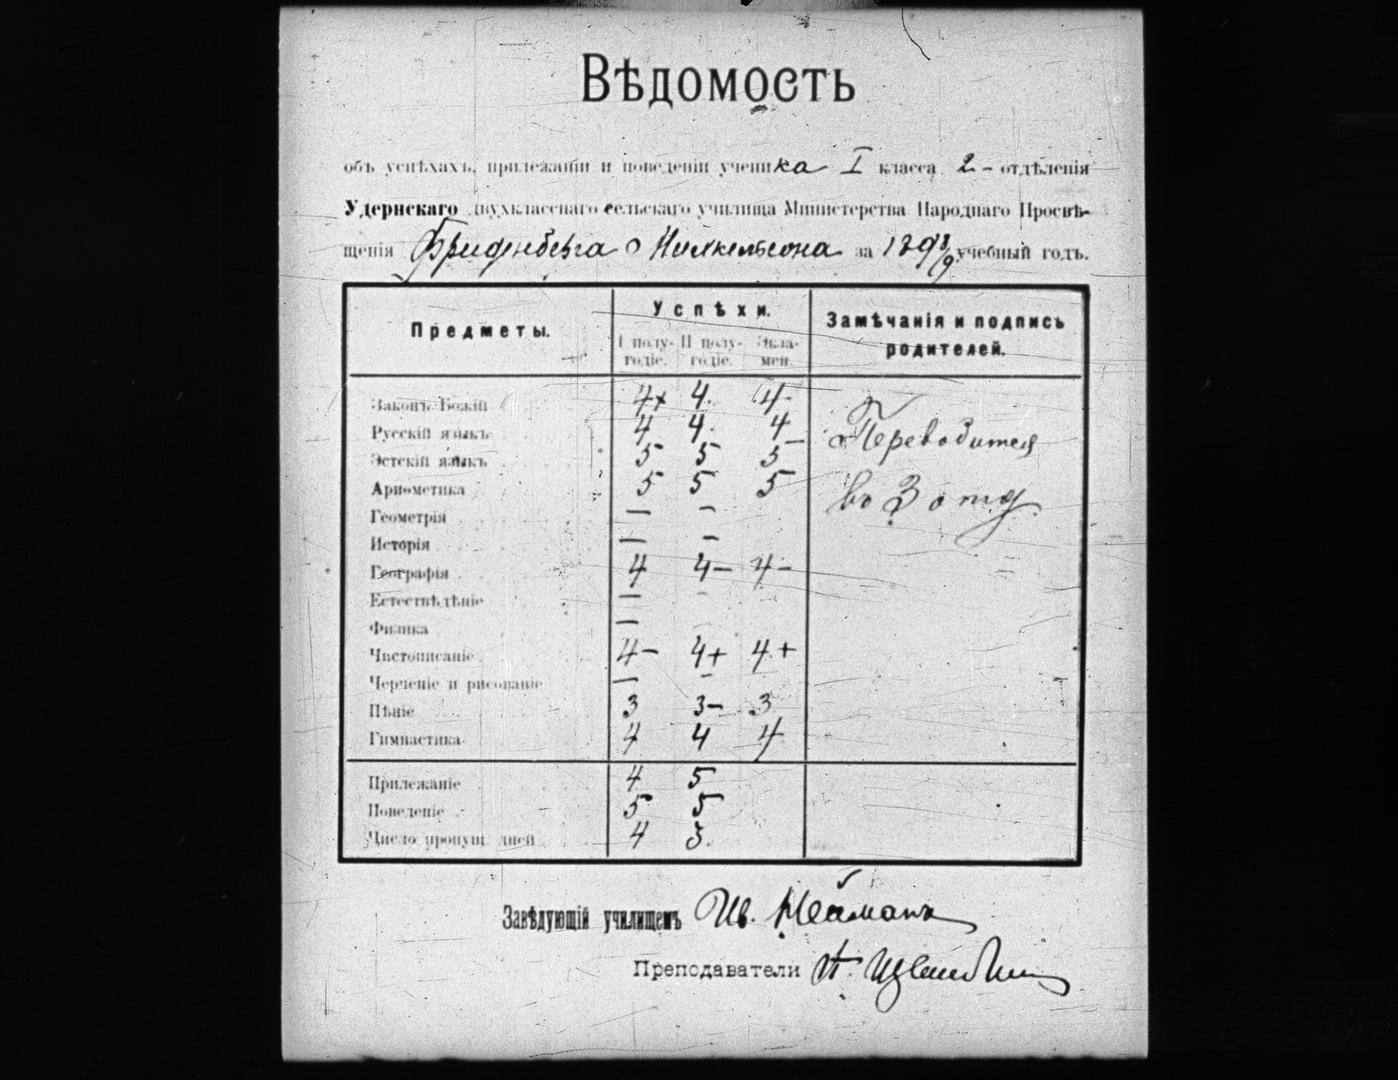 Вѣдомость
объ успѣхахъ, прилежаніи и поведеніи ученика I класса 2 - отдѣленія
Удернскаго двухкласснаго сельскаго училища Министерства Народнаго Просвѣ-
щенія Фриденберга за 1898/9 учебный годъ.
Предметы. Успѣхи. Замѣчанія и подпись родителей.
I полу-годіе. II полу-годіе. Экза-мен.
Законъ Божій 4+ 4. 4-
Русскій языкъ 4 4. 4-
Эстскій языкъ 5 5 5
Ариѳметика 5 5 5
Переводится
во 3 отд.
Геометрія — —
Исторія — —
Географія 4 4- 4-
Естествѣдѣніе — -
Физика —
Чистописаніе 4- 4+ 4+
Черченіе и рисованіе — -
Пѣніе 3 3- 3
Гимнастика 4 4 4
Прилежаніе 4 5
Поведеніе 5 5
Число пропущ. дней 4 3.
Завѣдующій училищемъ Ив. Нейманъ
Преподаватели